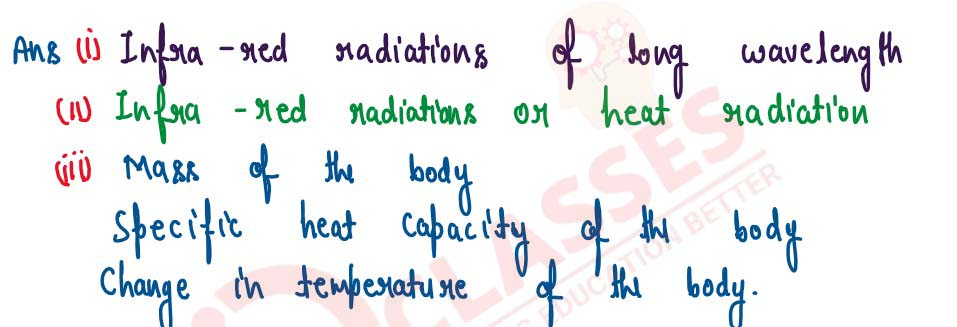 Ans (i) Infra-red radiations of long wavelength
(ii) Infra-red radiations or heat radiation
(iii) Mass of the body
Specific heat capacity of the body
Change in temperature of the body.
CLASSES
EDUCATION BETTER